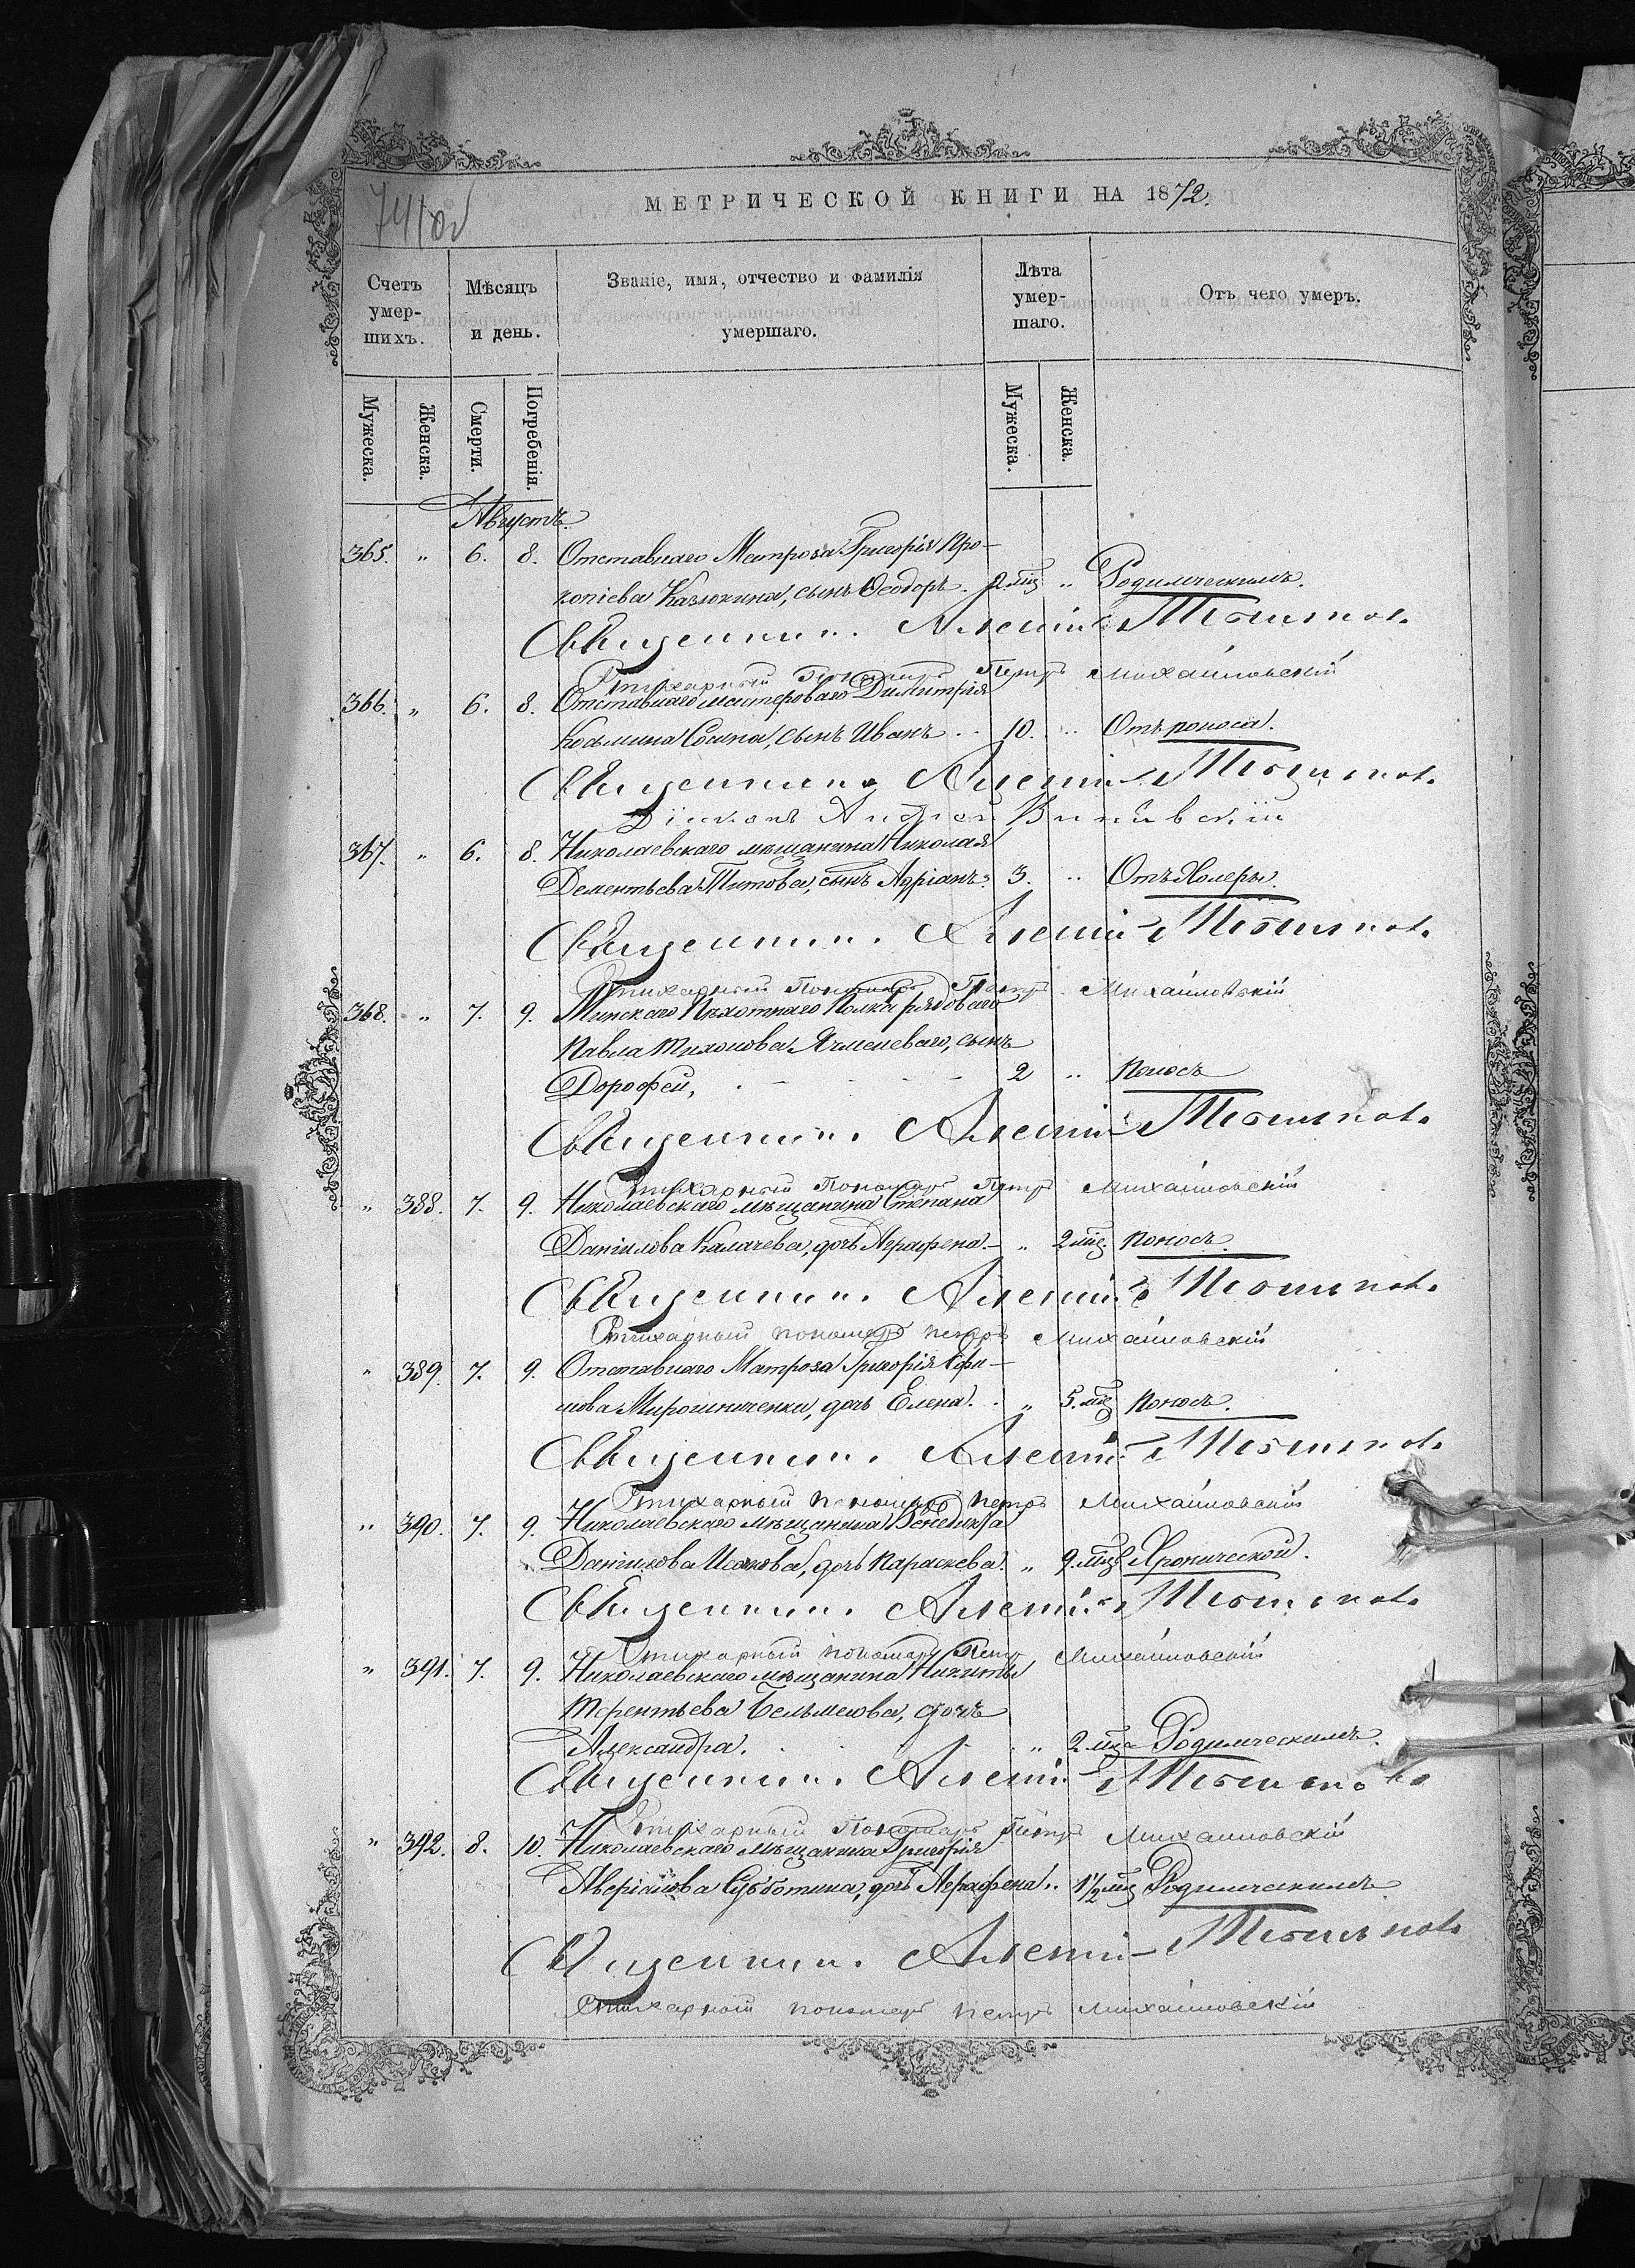 МЕТРИЧЕСКОЙ КНИГИ НА 1872.
Счетъ умер-шихъ.
Мѣсяцъ и день.
Званіе, имя, отчество и фамилія умершаго.
Лѣта умер-шаго.
Отъ чего умеръ.
Мужеска.
Женска.
Смерти.
Погребенія.
Мужеска.
Женска.
Августъ.
365. " 6. 8. Отставнаго Матроза Григорія Про-
копіева Казюкина, сынъ Ѳеодоръ. 2 мц " Родимческимъ.
Священник Алексій
Стихарный Пономарь Петръ Михайловскій
366. " 6. 8. Отставнаго мастероваго Димитрія
Космина Сосина, сынъ Иванъ .. 10. " Отъ поноса.
Священник Алексій
Діаконъ Андрей
367. " 6. 8. Николаевскаго мѣщанина Николая
Дементьева Титова, сынъ Адріанъ. 3. " Отъ Холеры.
Священник Алексій
Стихарный Пономарь Петръ Михайловскій
368. " 7. 9. Минскаго Пѣхотнаго Полка рядоваго
Павла Тихонова Ячменеваго, сынъ
Дорофей, 2 " Поносъ
Священник Алексій
Стихарный Пономарь Петръ Михайловскій
" 388. 7. 9. Николаевскаго мѣщанина Степана
Данилова Калачева, дочь Аграфена. " 2 мц. Поносъ.
Священник Алексій
Стихарный пономарь петръ Михайловскій
" 389. 7. 9. Отставнаго Матроза Григорія Ефи-
мова Мирошниченки, дочь Елена. " 5. мц Поносъ.
Священник Алексій
Стихарный пономарь петръ Михайловскій
" 390. 7. 9. Николаевскаго мѣщанина Венедикта
Данилова Исакова, дочь Параскева. " 9. мц Хронической.
Священник Алексій
Стихарный пономарь Петръ Михайловскій
" 391. 7. 9. Николаевскаго мѣщанина Никиты
Терентьева Бельмесова, дочь
Александра. " 2 мца Родимческимъ.
Священник Алексій
Стихарный Пономарь Петръ Михайловскій
" 392. 8. 10. Николаевскаго мѣщанина Григорія
Аверіанова Субботина, дочь Аграфена. " 1½ мц Родимческимъ
Священник Алексій
Стихарный пономарь петръ Михайловскій